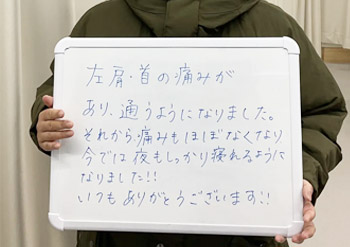 左肩・首の痛みが
あり、通うようになりました。
それから痛みもほぼなくなり
今では夜もしっかり寝れるように
なりました!!
いつもありがとうございます!!